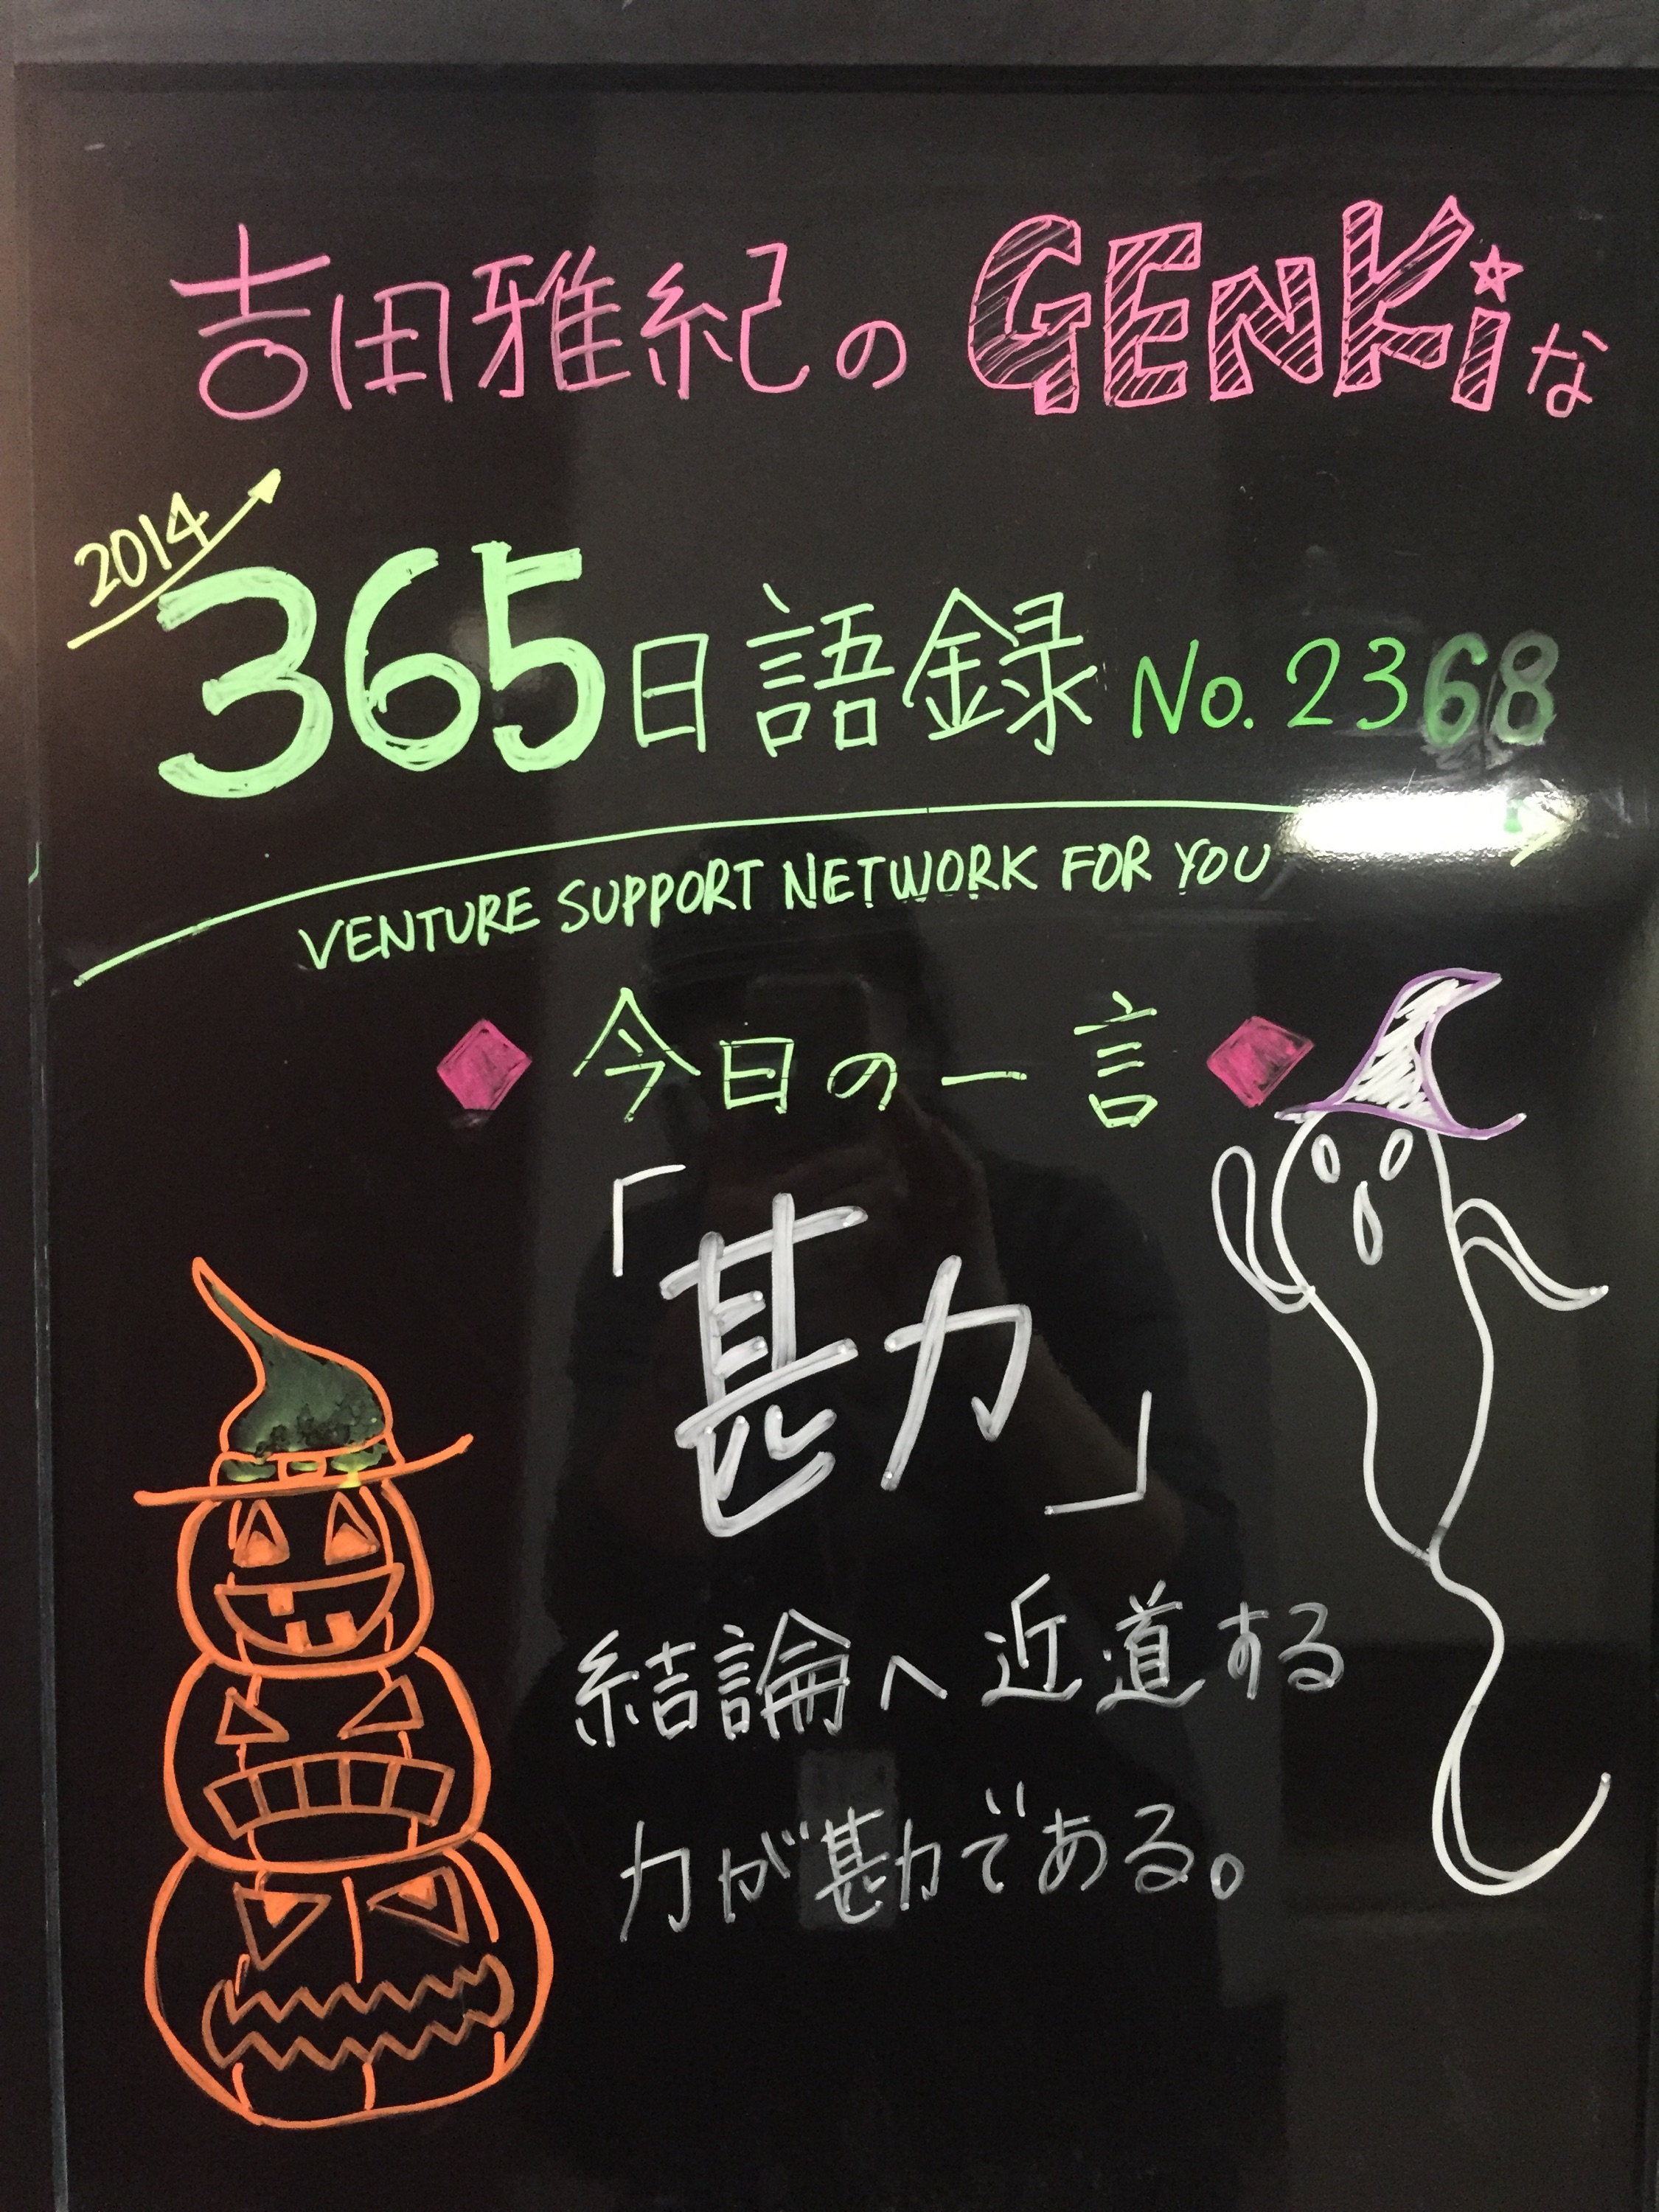 吉田雅紀のGENKiな
2014
365日語録 No.2368
VENTURE SUPPORT NETWORK FOR YOU
◆今日の一言◆
「勘」
結論へ近道する
力が勘である。